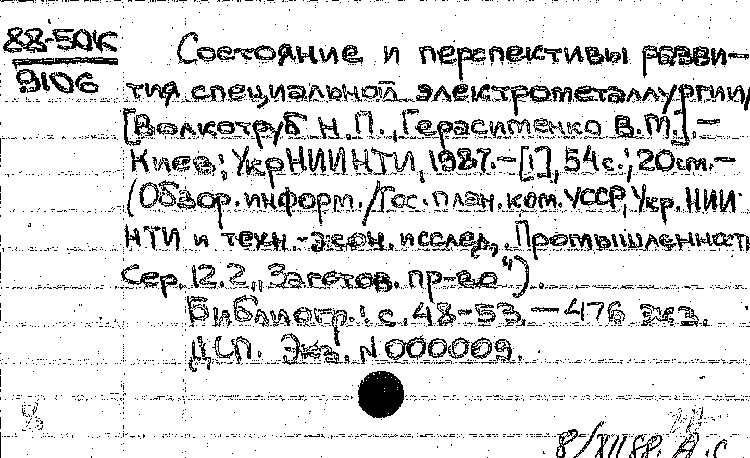 88-50К
9106
Состояние и перспективы разви-
тия специальной электрометаллургии/
[Волкотруб Н.П., Герасименко В.М.].-
Киев; УкрНИИНТИ, 1987.-[1], 54с.; 20см.-
(Обзор.информ./Гос.план.ком.УССР, Укр.НИИ
НТИ и техн.-экон.исслед., Промышленност
Сер.12.2 „Загетов.пр-во").
Библиогр.: с.48-53.-476 экз.
ДСП. Экз. N000009.
8/XII 88.